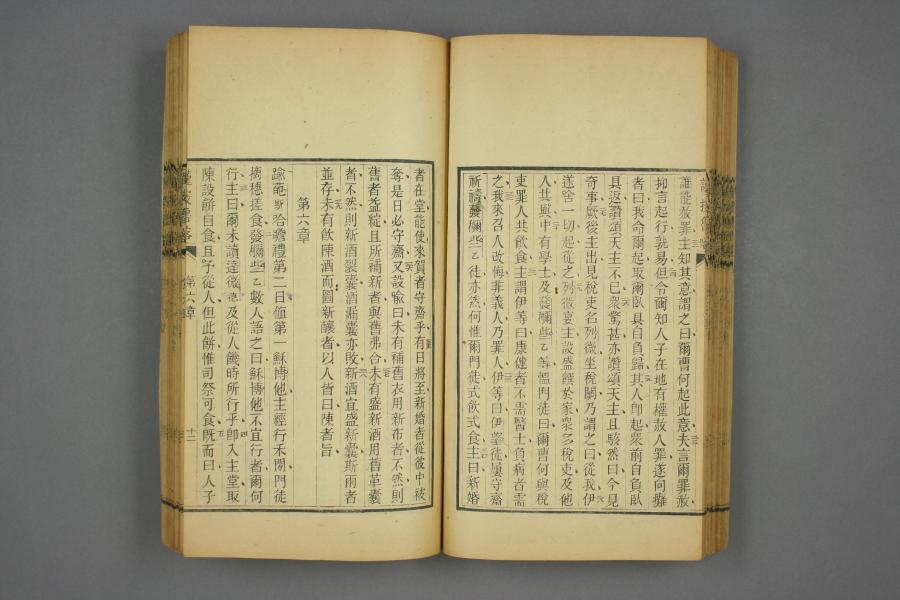 誰能赦罪主知其意謂之曰爾曹何起此意夫言爾罪赦
抑言起行孰易但令爾知人子在地有權赦人罪遂向癱
者曰我命爾起取爾臥具自負歸其人即起衆前自負臥
具返讚頌天主不已衆驚甚亦讚頌天主且駭然曰今見
奇事厥後主出見稅吏名列微坐稅關乃謂之曰從我伊
遂舍一切起從之列微宴主設盛饌於家衆多稅吏及他
人共與中有學士及發爾些乙等慍門徒曰爾曹何與稅
吏罪人共飲食主謂伊等曰康健者不需醫士負病者需
之我來召人改悔非義人乃罪人伊等曰伊望徒屢守齋
祈禱發爾些乙徒亦然何惟爾門徒式飲式食主曰新婚
者在堂能使來賀者守齋乎有日將至新婚者從彼中被
奪是日必守齋又設喻曰未有補舊衣用新布者不然則
舊者益綻且所補新者與舊弗合未有盛新酒用舊革囊
者不然則新酒裂囊酒漏囊亦敗新酒宜盛新囊斯兩者
並存未有飲陳酒而圖新釀者以人皆曰陳者旨
第六章
踰葩斯哈瞻禮第二日值第一穌博他主經行禾間門徒
摘穗搓食發爾些乙數人語之曰穌博他不宜行者爾何
行主曰爾未讀達微及從人饑時所行乎即入主堂取
陳設餅自食且予從人但此餅惟司祭可食旣而曰人子
第六章
十二